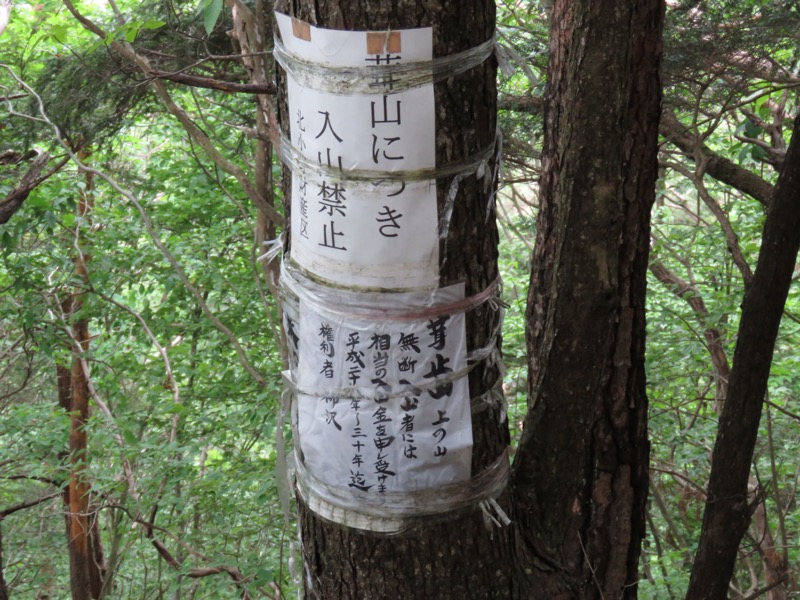 茸山につき
入山禁止
北小 財産区
茸止山 上の山
無断入山者には
相当の入山金を申し受けま
平成二十 年～三十年迄
権利者 柳沢